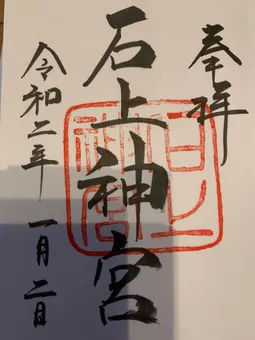 奉拝
石上神宮
令和二年 一月二日